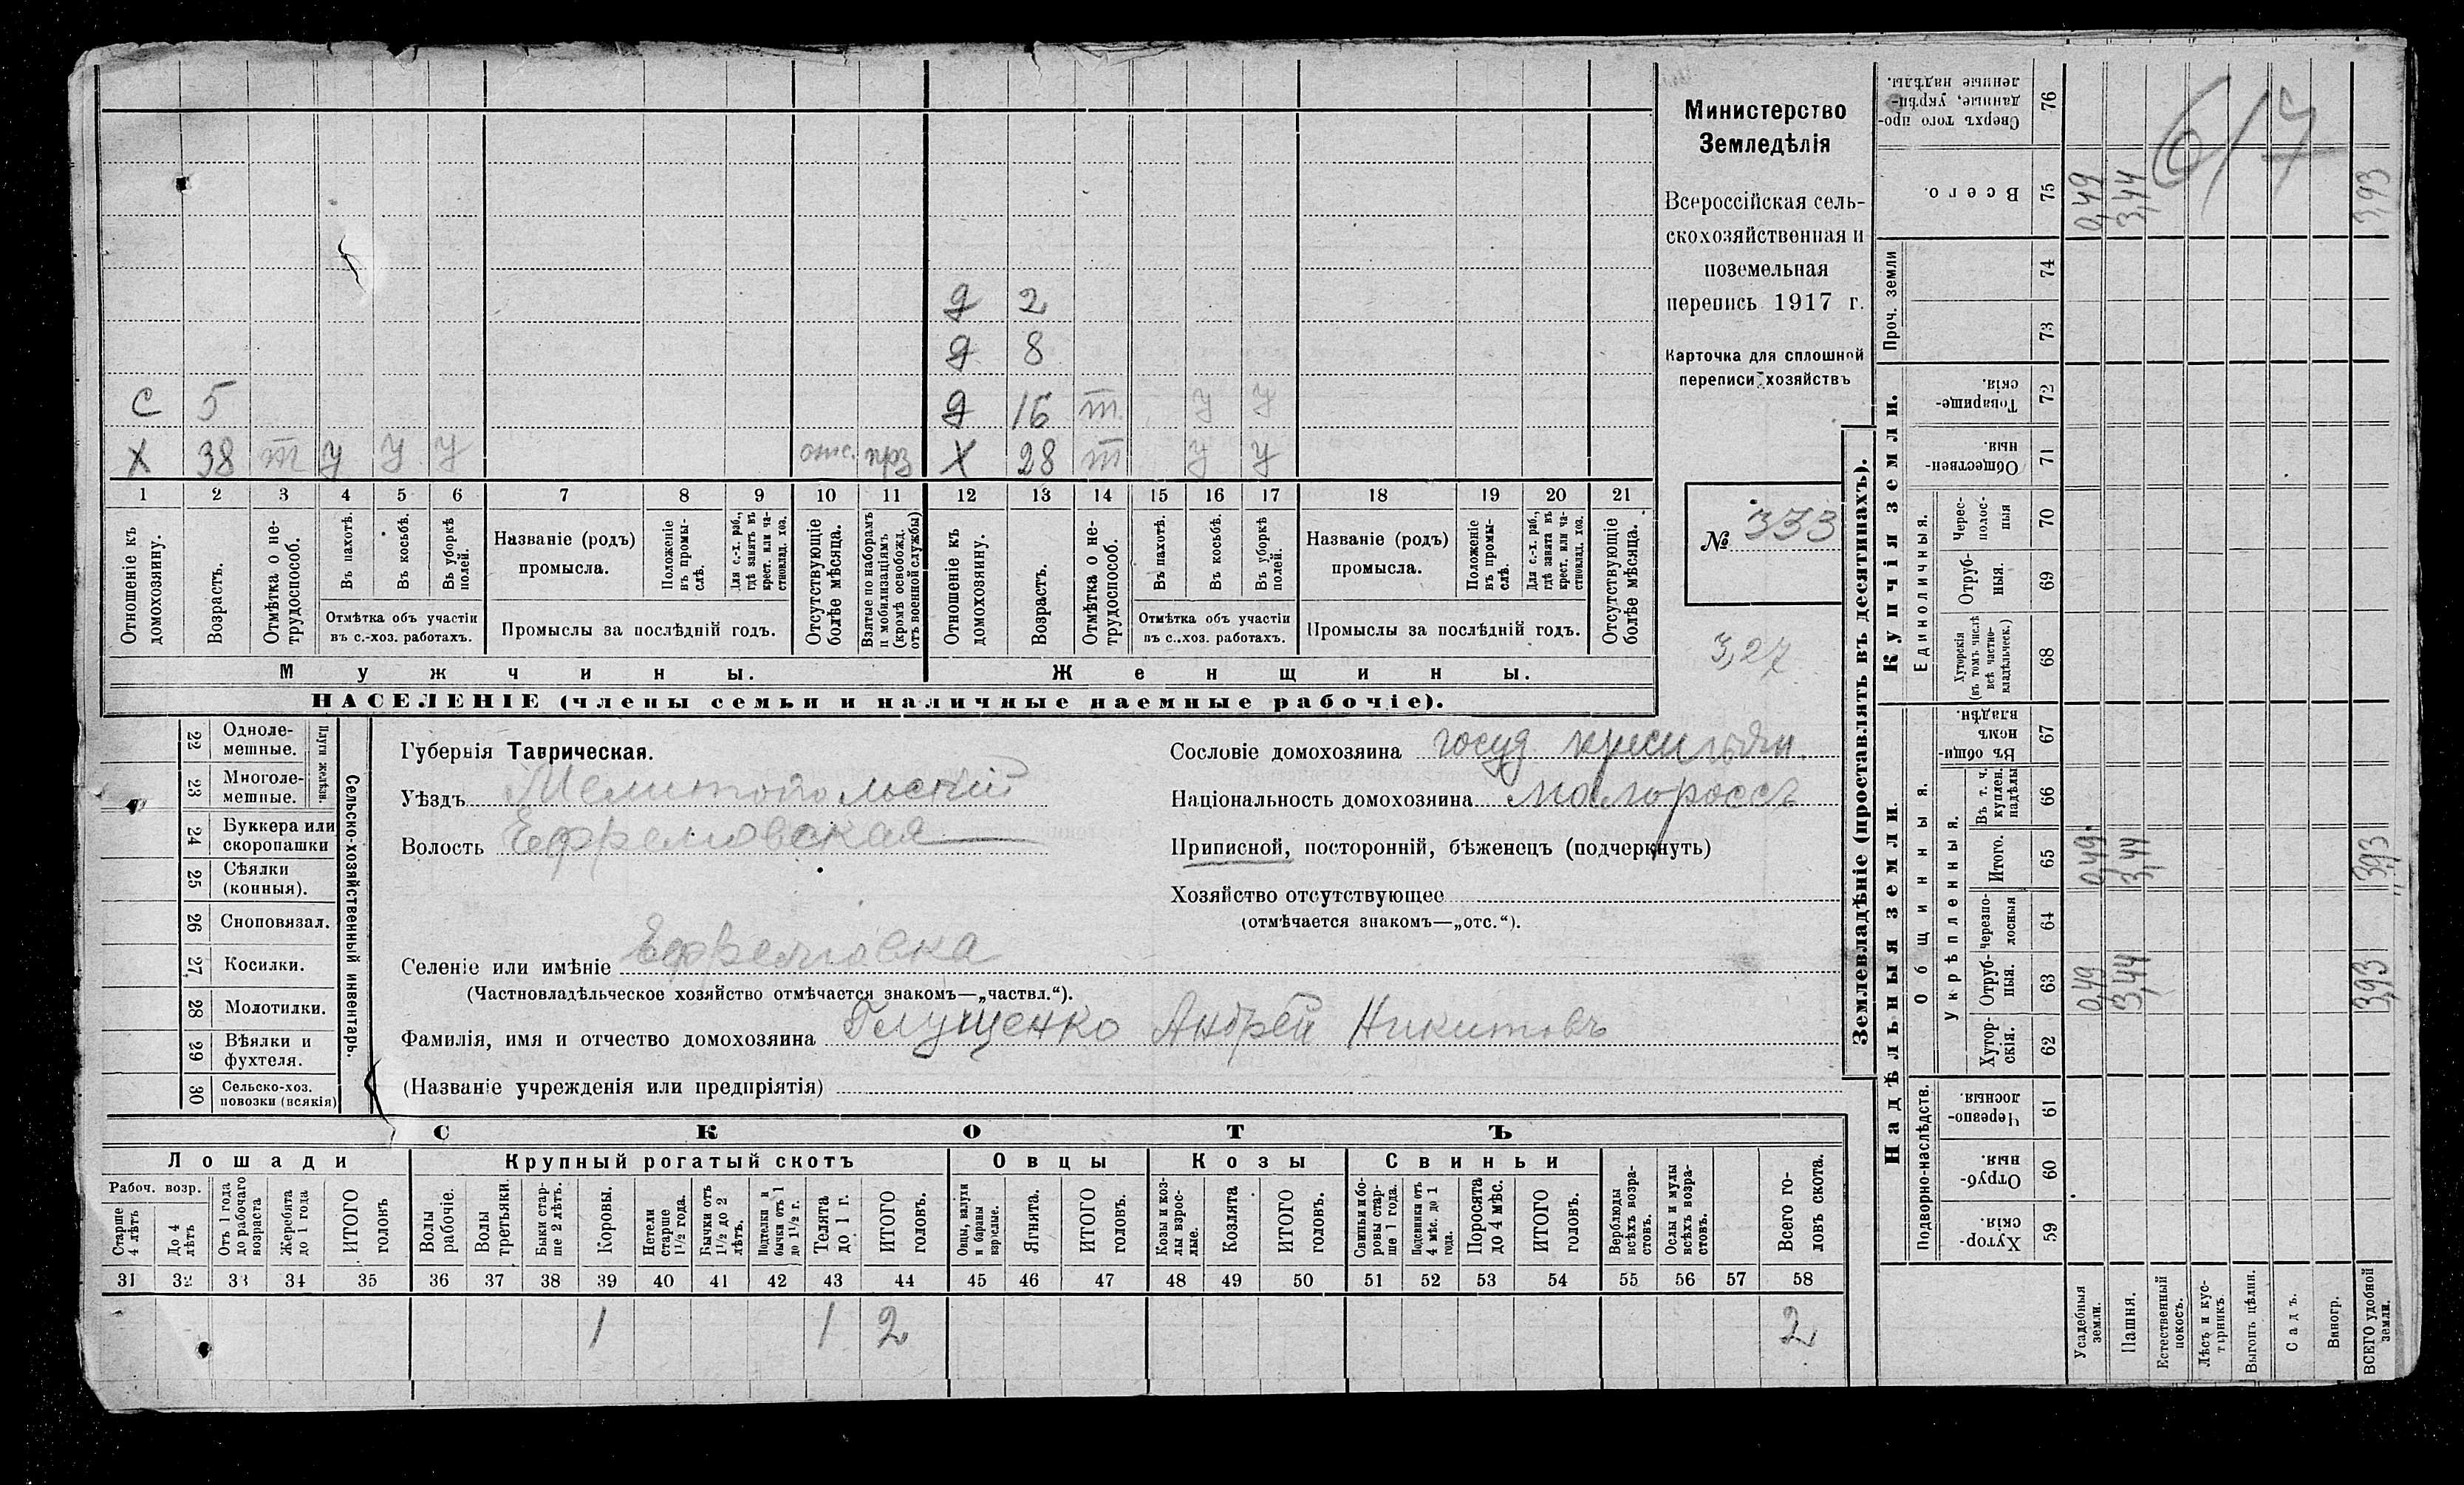 д 2
д 8
С 5 д 16 т У У
Х 38 т У У У отс. прз Х 28 т У У
1 2 3 4 5 6 7 8 9 10 11 12 13 14 15 16 17 18 19 20 21
Отношеніе къ домохозяину.
Возрастъ.
Отмѣтка о не-трудоспособ.
Въ пахотѣ.
Въ косьбѣ.
Въ уборкѣ полей.
Отмѣтка объ участіи
въ с.-хоз. работахъ.
Названіе (родъ)
промысла.
Положеніе въ промы-слѣ.
Для с.-х. раб., гдѣ занятъ въ крест. или ча-стновлад. хоз.
Промыслы за послѣдній годъ.
Отсутствующіе болѣе мѣсяца.
Взятые по наборамъ и мобилизаціямъ (кромѣ освобожд. отъ военной службы)
Отношеніе къ домохозяину.
Возрастъ.
Отмѣтка о не-трудоспособ.
Въ пахотѣ.
Въ косьбѣ.
Въ уборкѣ полей.
Отмѣтка объ участіи
въ с..хоз. работахъ.
Названіе (родъ)
промысла.
Положеніе въ промы-слѣ.
Для с.-х. раб., гдѣ занята въ крест. или ча-стновлад. хоз.
Промыслы за послѣдній годъ.
Отсутствующіе болѣе мѣсяца.
Мужчины. Женщины.
НАСЕЛЕНІЕ (члены семьи и наличные наемные рабочіе).
Министерство
Земледѣлія
Всероссійская сель-
скохозяйственная и
поземельная
перепись 1917 г.
Карточка для сплошной
переписи хозяйствъ
№ 333
3,27
22 Одноле-мешные.
23 Многоле-мешные.
Плуги желѣзн.
24 Буккера или скоропашки
25 Сѣялки (конныя).
26 Сноповязал.
27 Косилки.
28 Молотилки.
29 Вѣялки и фухтеля.
30 Сельско-хоз. повозки (всякія)
Сельско-хозяйственный инвентарь.
Губернія Таврическая.
Уѣздъ Мелитопольскій
Волость Ефремовская
Селеніе или имѣніе Ефремовка
(Частновладѣльческое хозяйство отмѣчается знакомъ—„частвл.“).
Фамилія, имя и отчество домохозяина Глущенко Андрей Никитовъ
(Названіе учрежденія или предпріятія)
Сословіе домохозяина госуд. крестьян.
Національность домохозяина малороссъ
Приписной, посторонній, бѣженецъ (подчеркнуть)
Хозяйство отсутствующее
(отмѣчается знакомъ—„отс.“).
СКОТЪ
Лошади Крупный рогатый скотъ Овцы Козы Свиньи
Рабоч. возр.
Старше 4 лѣтъ
До 4 лѣтъ
Отъ 1 года до рабочаго возраста
Жеребята до 1 года
ИТОГО головъ
Волы рабочіе.
Волы третьяки.
Быки стар-ше 2 лѣтъ.
Коровы.
Нетели старше 1 1/2 года.
Бычки отъ 1 1/2 до 2 лѣтъ.
Подтелки и бычки отъ 1 до 1 1/2 г.
Телята до 1 г.
ИТОГО головъ.
Овцы, валухи и бараны взрослые.
Ягнята.
ИТОГО головъ.
Козы и коз-лы взрос-лые.
Козлята
ИТОГО головъ.
Свиньи и бо-ровы стар-ше 1 года.
Подсвинки отъ 4 мѣс. до 1 года.
Поросята до 4 мѣс.
ИТОГО головъ.
Верблюды всѣхъ возра-стовъ.
Ослы и мулы всѣхъ возра-стовъ.
Всего го-ловъ скота.
31 32 33 34 35 36 37 38 39 40 41 42 43 44 45 46 47 48 49 50 51 52 53 54 55 56 57 58
1 1 2 2
Землевладѣніе (проставлять въ десятинахъ).
Надѣльныя земли. Купчія земли. Проч. земли
Подворно-наслѣдств.
Общинныя.
Укрѣпленныя.
Единоличныя.
59 Хутор-скія.
60 Отруб-ныя.
61 Черезпо-лосныя.
62 Хутор-скія.
63 Отруб-ныя. 0,49 3,44 3,93
64 черезпо-лосныя
65 Итого. 0,49 3,44 3,93
66 Въ т. ч. куплен. надѣлы
67 Въ общи-номъ владѣн.
68 Хуторскія (въ томъ числѣ всѣ частно-владѣльческ.)
69 Отруб-ныя.
70 Черес-полос-ныя
71 Обществен-ныя
72 Товарище-скія.
73
74
75 Всего. 0,49 3,44 3,93
76 Сверхъ того про-данные, укрѣп-ленные надѣлы.
6/7
Усадебныя земли.
Пашня.
Естественный покосъ.
Лѣсъ и кус-тарникъ.
Выгонъ цѣлин.
Садъ.
Виногр.
ВСЕГО удобной земли.